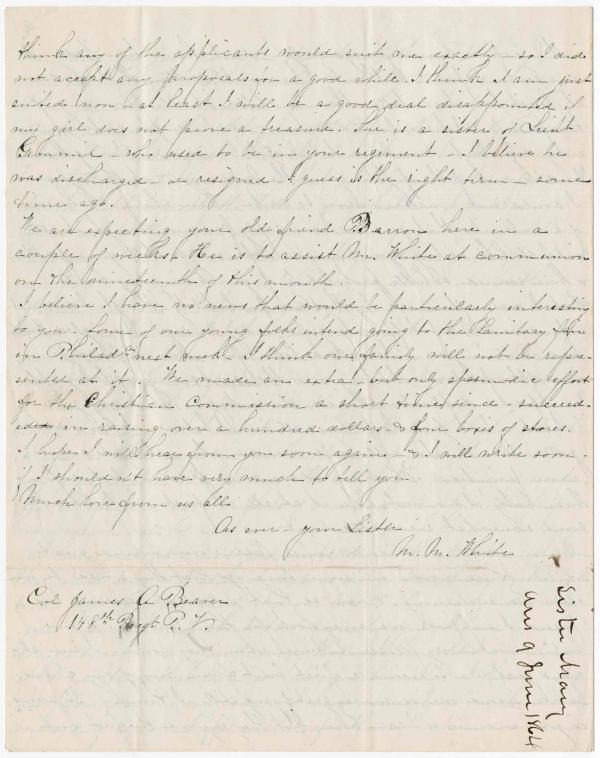 think any of the applicants would suit me exactly - so I did
not accept any proposals for a good while. I think I am just
suited now - at least I will be a good deal disappointed if
my girl does not prove a treasure. She is a sister of Lieut
Gemmill - who used to be in your regiment - I believe he
was discharged - or resigned - I guess is the right term - some
time ago.
We are expecting your old friend Barron here in a
couple of weeks. He is to assist Mr. White at communion
on the nineteenth of this month.
I believe I have no news that would be particularly interesting
to you. Some of our young folks intend going to the Sanitary fair
in Philadª next week. I think our family will not be repre-
sented at it. We made an extra - but only spasmodic effort
for the Christian Commission a short time since - succeed-
ed in raising over a hundred dollars - & four boxes of stores.
I hope I will hear from you soon again - & I will write soon -
if I shouldn't have very much to tell you.
Much love from us all.
As ever - your Sister
M. M. White
Col James A Beaver
148th Regt P. V.
Sister Mary
Ans 9 June 1864